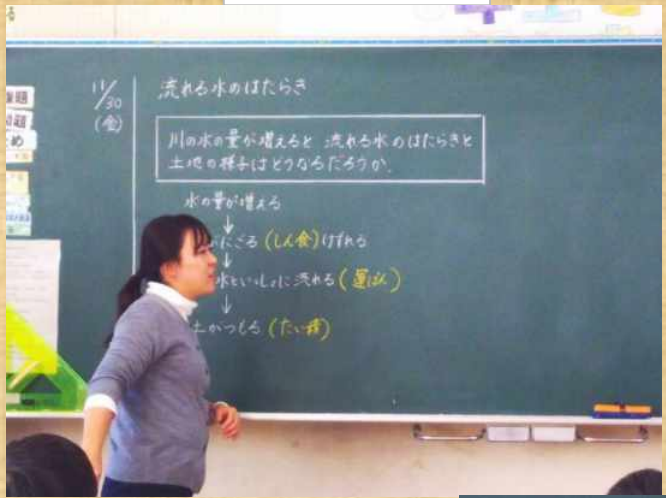 11/30
(金)
流れる水のはたらき
川の水の量が増えると 流れる水のはたらきと
土地の様子はどうなるだろうか。
水の量が増える
↓
にごる(しん食)けずれる
↓
水といっしょに流れる(運ぱん)
↓
土がつもる(たい積)
題
め